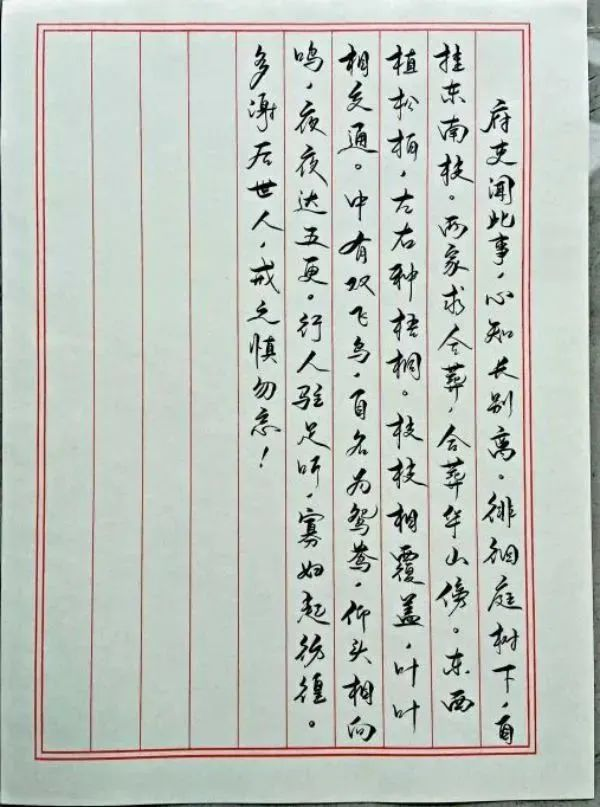 府吏闻此事，心知长别离。徘徊庭树下，自
挂东南枝。两家求合葬，合葬华山傍。东西
植松柏，左右种梧桐。枝枝相覆盖，叶叶
相交通。中有双飞鸟，自名为鸳鸯，仰头相向
鸣，夜夜达五更。行人驻足听，寡妇起彷徨。
多谢后世人，戒之慎勿忘！